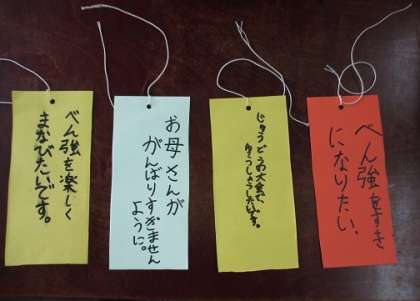 べん強をすき
になりたい。
じゅうどうの大会で、
ゆうしょうしたいです。
お母さんが
がんばりすぎません
ように。
べん強を楽しく
まなびたいです。